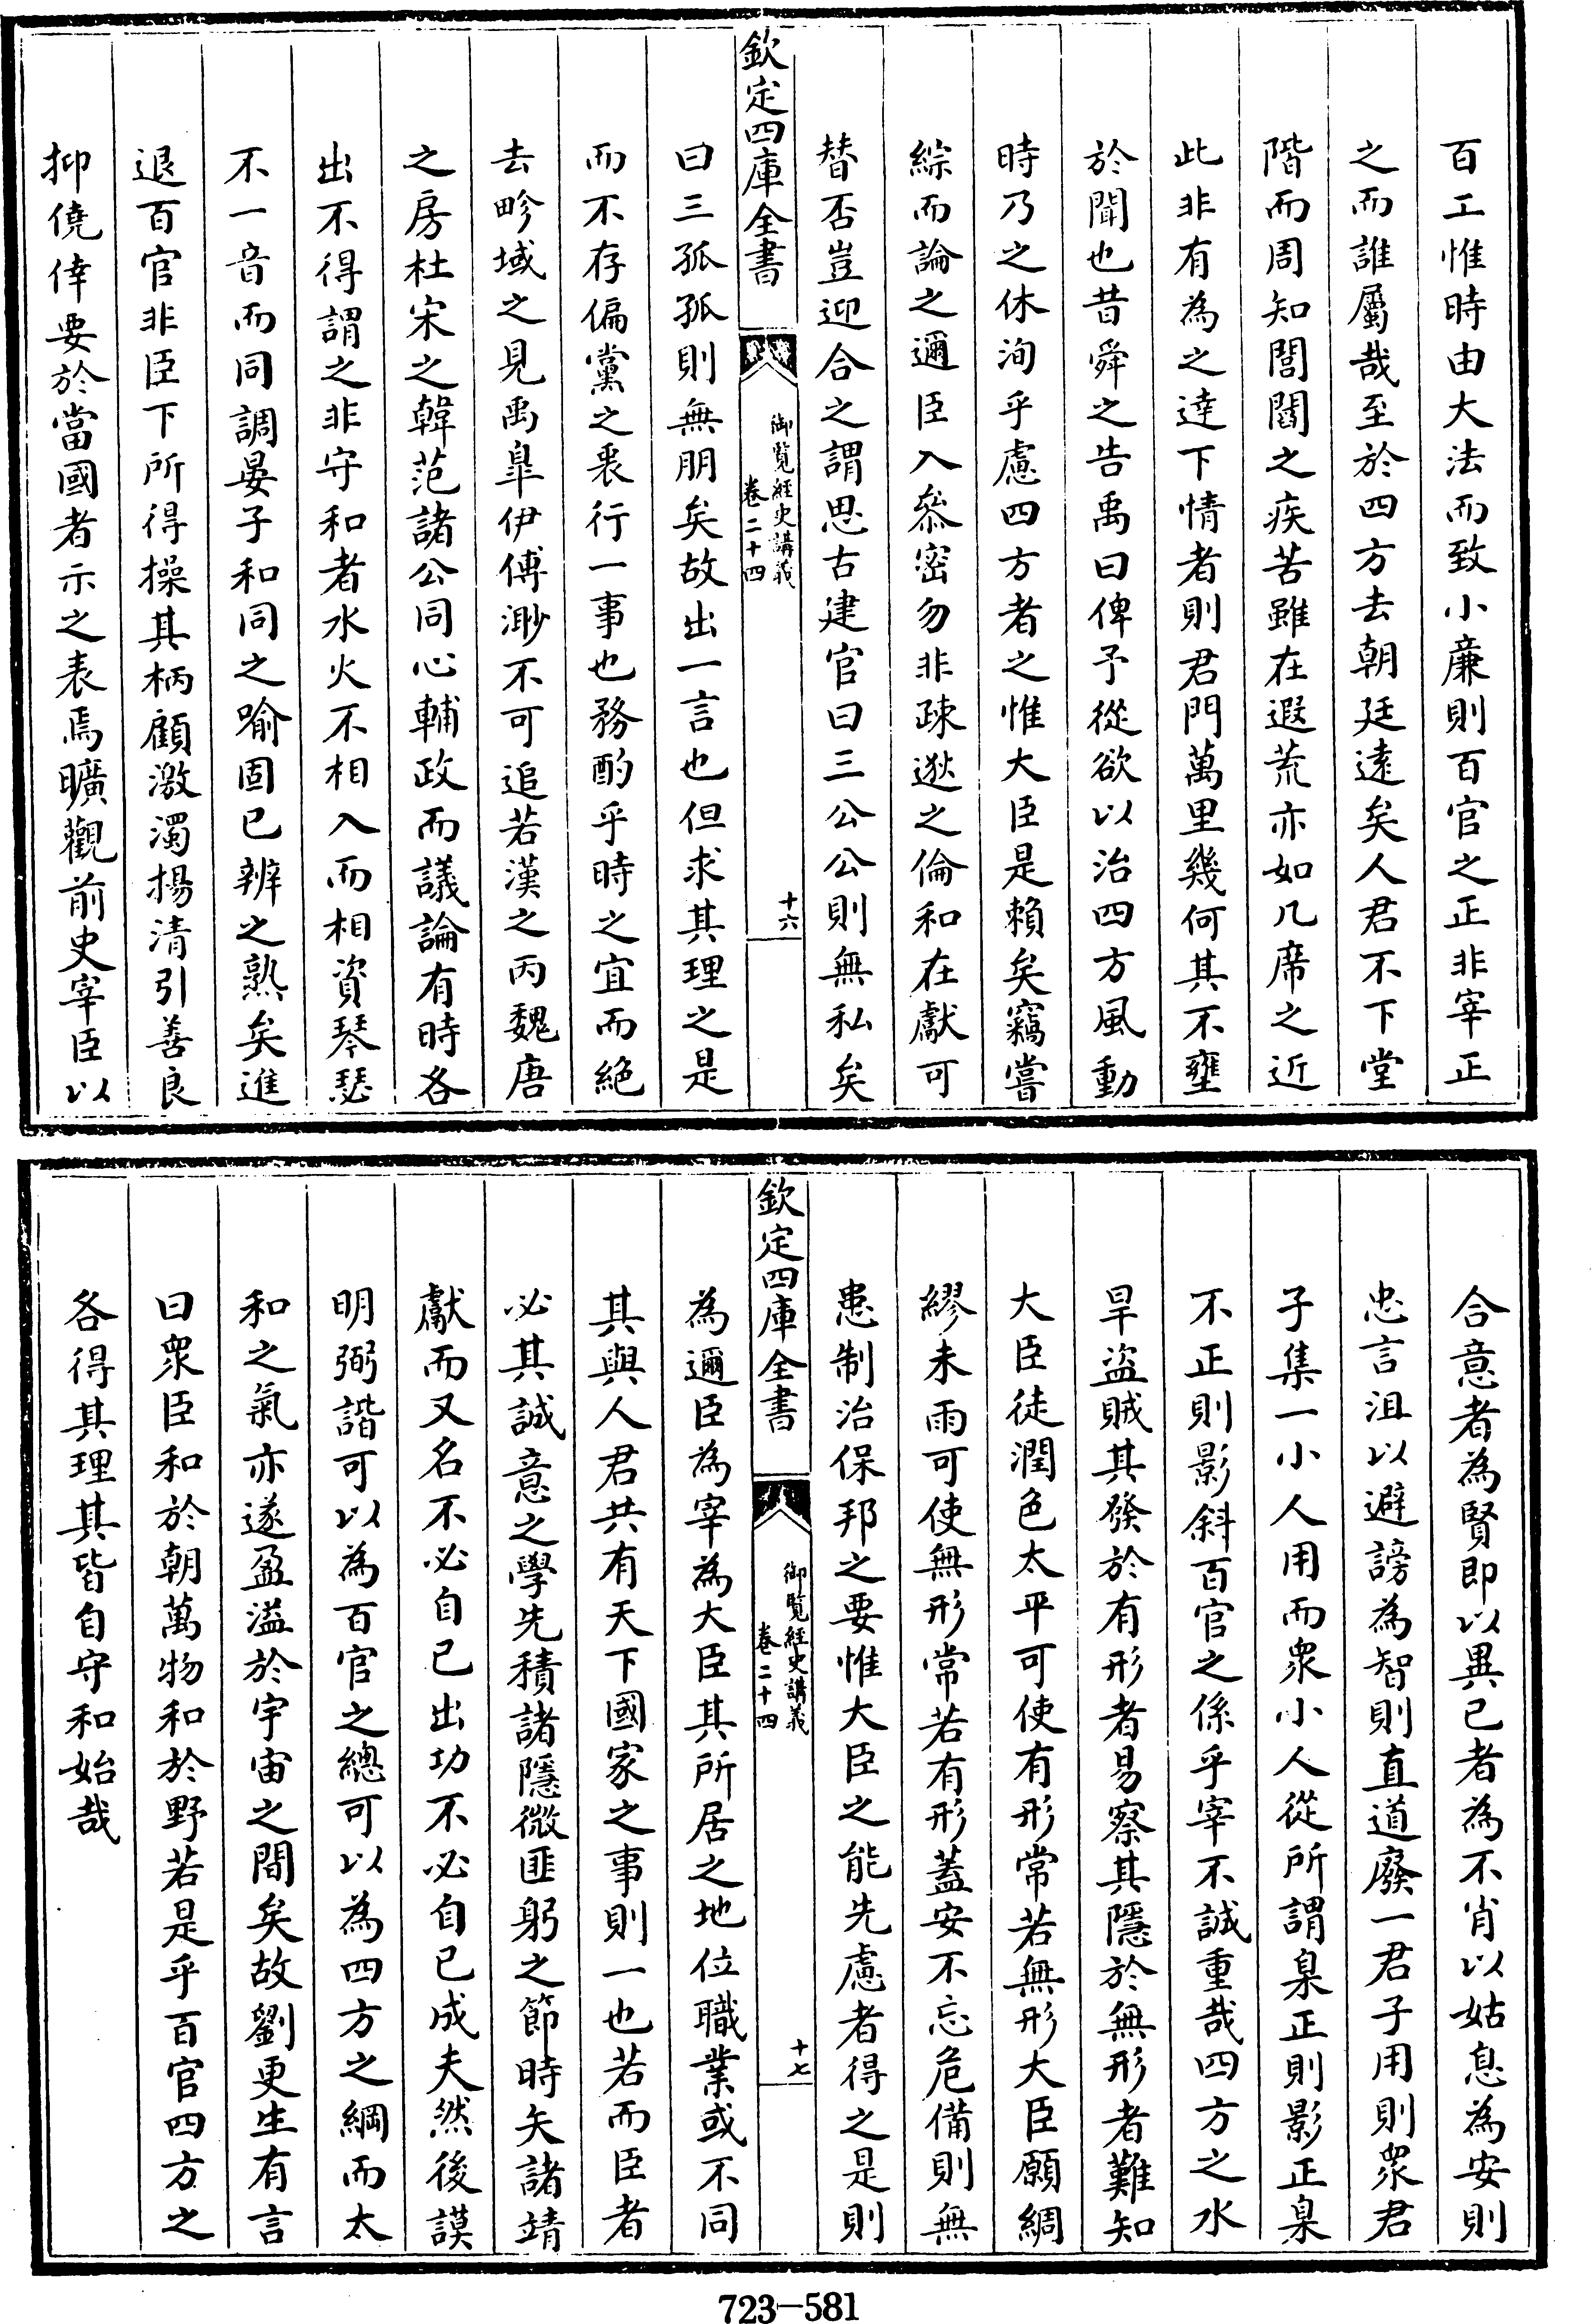 百工惟時由大法而致小廉則百官之正非宰正
之而誰屬哉至於四方去朝廷遠矣人君不下堂
階而周知閭閻之疾苦雖在遐荒亦如几席之近
此非有為之達下情者則君門萬里幾何其不壅
於聞也昔舜之告禹曰俾予從欲以治四方風動
時乃之休洵乎慮四方者之惟大臣是賴矣竊嘗
綜而論之邇臣入叅密勿非疎逖之倫和在獻可
替否豈迎合之謂思古建官曰三公公則無私矣
欽定四庫全書
御覽經史講義
卷二十四
十六
曰三孤孤則無朋矣故出一言也但求其理之是
而不存偏黨之衷行一事也務酌乎時之宜而絕
去畛域之見禹臯伊傅渺不可追若漢之丙魏唐
之房杜宋之韓范諸公同心輔政而議論有時各
出不得謂之非守和者水火不相入而相資琴瑟
不一音而同調晏子和同之喻固已辨之熟矣進
退百官非臣下所得操其柄顧激濁揚清引善良
抑僥倖要於當國者示之表焉曠觀前史宰臣以
合意者為賢即以異己者為不肖以姑息為安則
忠言沮以避謗為智則直道廢一君子用則衆君
子集一小人用而衆小人從所謂臬正則影正臬
不正則影斜百官之係乎宰不誠重哉四方之水
旱盜賊其發於有形者易察其隱於無形者難知
大臣徒潤色太平可使有形常若無形大臣願綢
繆未雨可使無形常若有形蓋安不忘危備則無
患制治保邦之要惟大臣之能先慮者得之是則
欽定四庫全書
御覽經史講義
卷二十四
十七
為邇臣為宰為大臣其所居之地位職業或不同
其與人君共有天下國家之事則一也若而臣者
必其誠意之學先積諸隱微匪躬之節時矢諸靖
獻而又名不必自已出功不必自已成夫然後謨
明弼諧可以為百官之總可以為四方之綱而太
和之氣亦遂盈溢於宇宙之間矣故劉更生有言
曰衆臣和於朝萬物和於野若是乎百官四方之
各得其理其皆自守和始哉
723-581